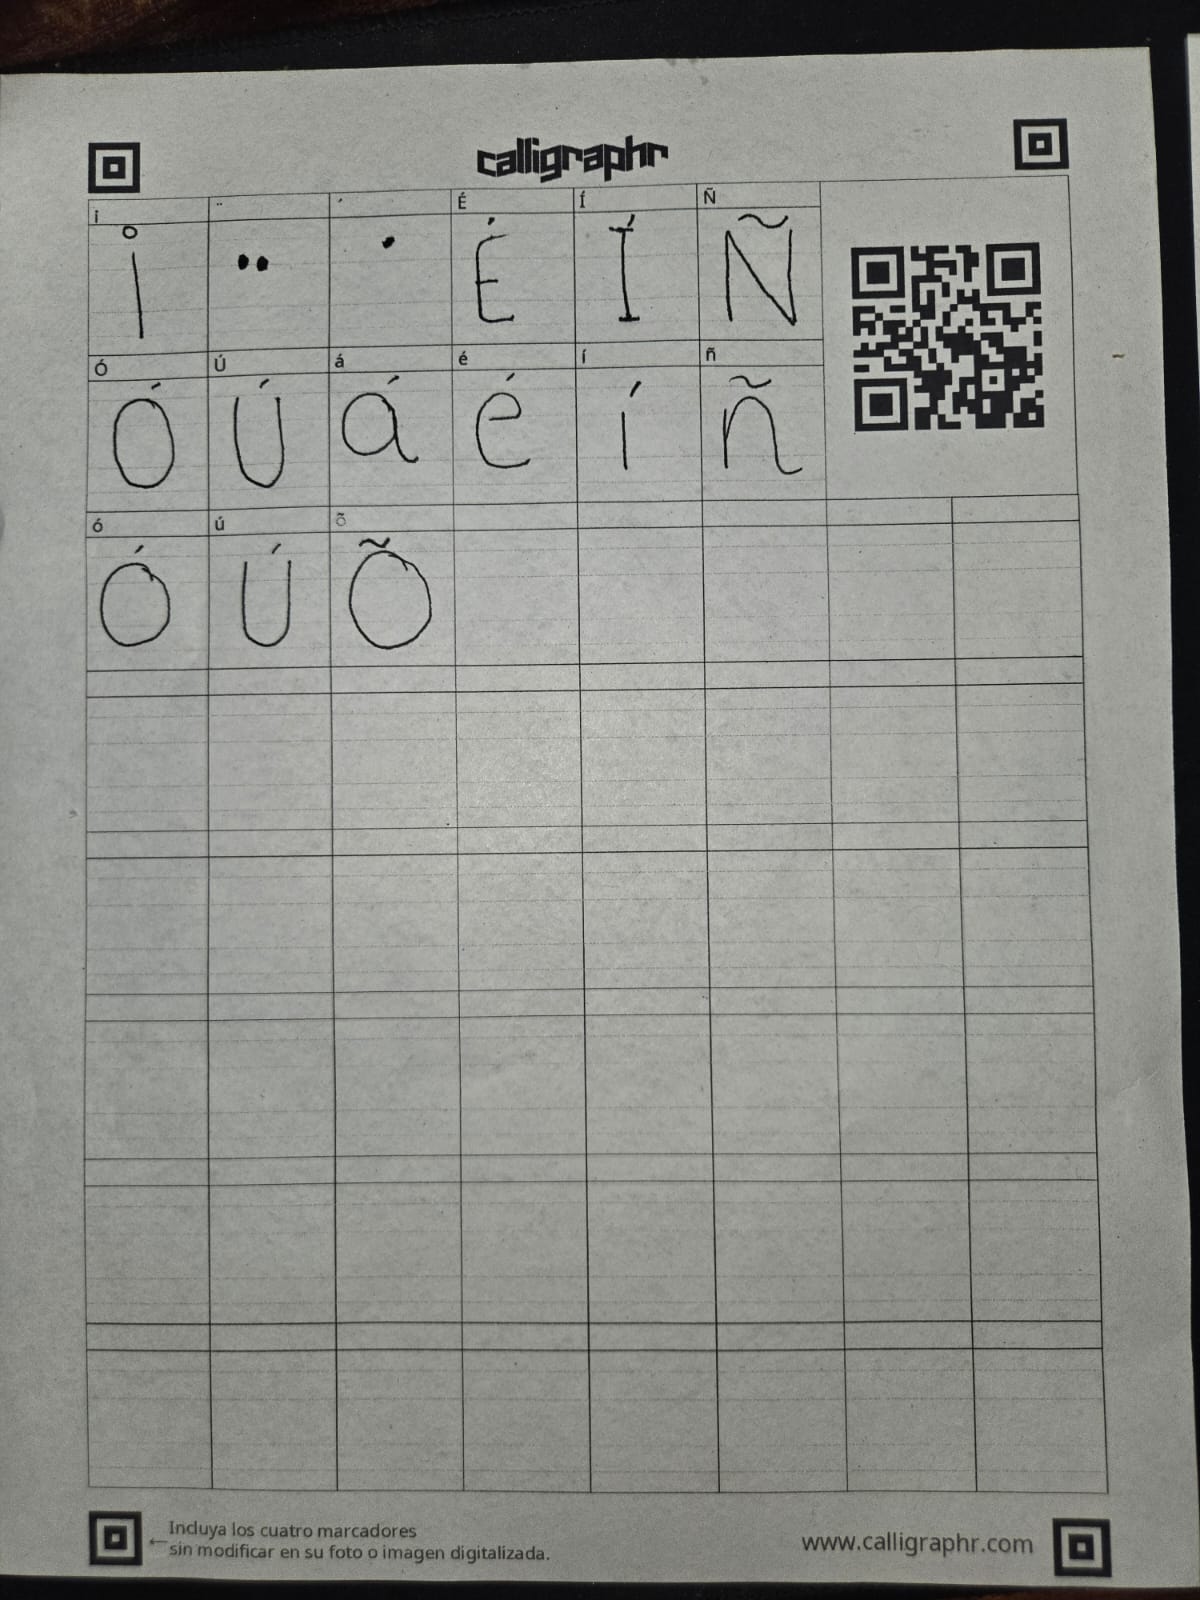 calligraphr
¡ ¨ ´ É Í Ñ
¡ ¨ ´ É Í Ñ
Ó Ú á é í ñ
Ó Ú á é í ñ
ó ú õ
ó ú õ
←Incluya los cuatro marcadores
sin modificar en su foto o imagen digitalizada.
www.calligraphr.com